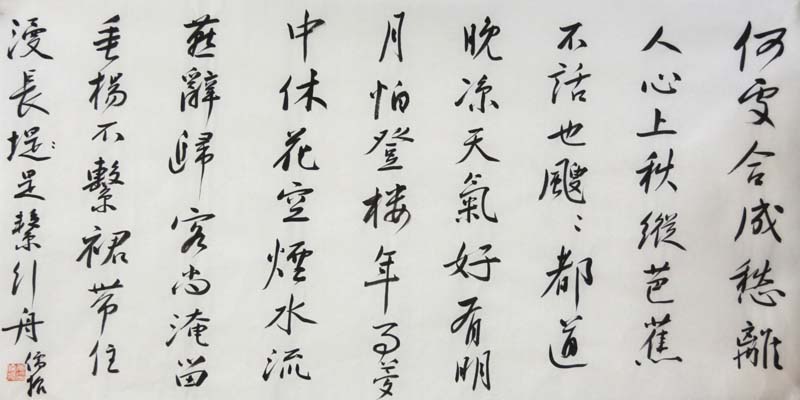 何處合成愁離
人心上秋縱芭蕉
不話也颼〻都道
晚涼天氣好有明
月怕登楼年事夢
中休花空煙水流
燕辭歸客尚淹留
垂楊不繫裙帶住
漫長堤是繫行舟